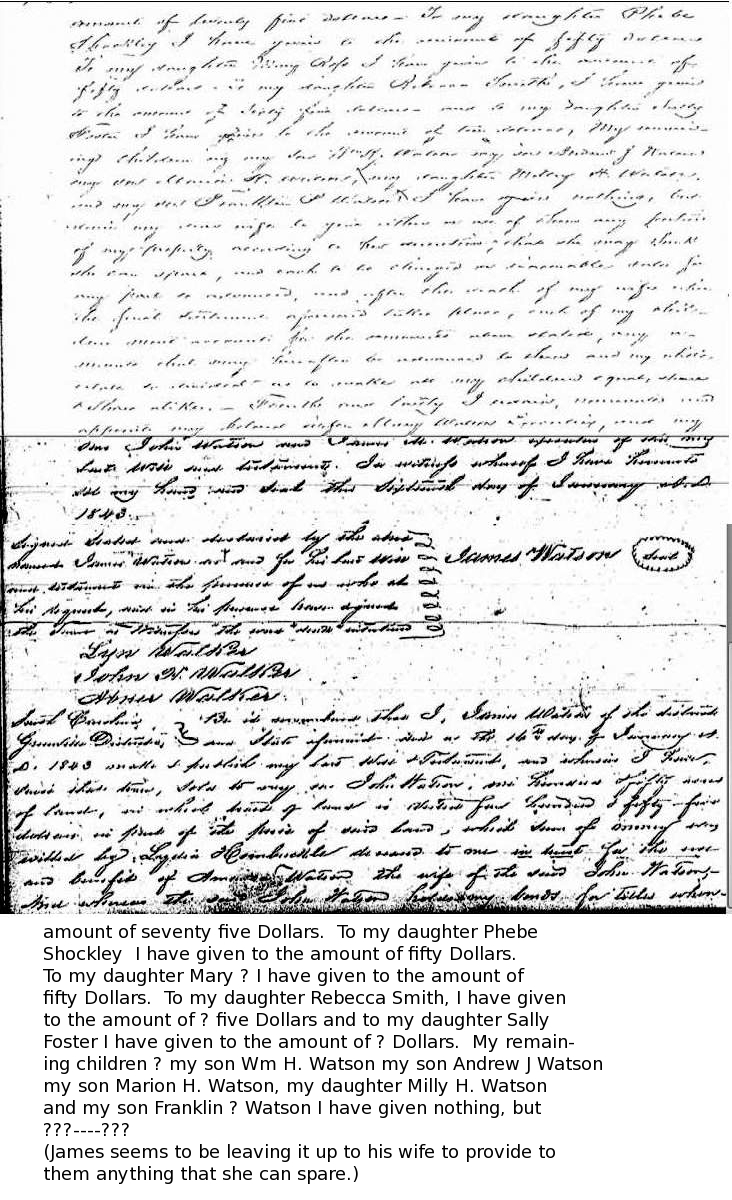 amount of seventy five dollars - To my daughter Phebe
Shockley I have given to the amount of fifty dollars
To my daughter I have given to the amount of
fifty dollars - To my daughter Rebecca Smith, I have given
to the amount of five dollars - and to my daughter Sally
Foster I have given to the amount of dollars, My remain-
ing children my son Wm H. Watson my son Andrew J Watson
my son Marion H. Watson, my daughter Milly H. Watson
and my son Franklin Watson I have given nothing, but
my wife to give either or all of them any portion
of my property according to her discretion, that she may think
she can spare, and each to be charged a reasonable rate for
any part so advanced, and after the death of my wife when
the final settlement takes place, each of my child-
ren must account for the amounts above stated, any a-
mounts that may hereafter be advanced to them and my whole
estate so divided as to make all my children equal, share
& share alike. - Fourthly and lastly I ordain, nominate and
appoint my beloved wife Mary Watson Executrix, and my
son John Watson and James M. Watson executors of this my
last will and testament. In witness whereof I have hereunto
set my hand and seal this Sixteenth day of January A.D.
1843.
Signed Sealed and declared by the above
named James Watson as and for his last will
and testament in the presence of us who at
his request, and in his presence have signed
the same as Witness the word
James Watson Seal
Lyn Walker
John H. Walker
Abner Walker
South Carolina,
Greenville District,
Be it remembered that I, James Watson of the district
and State aforesaid did on the 16th day of January A.
D. 1843 make & publish my last Will & Testament, and whereas I have,
since that time, sold to my son John Watson, one hundred & fifty acres
of land, in which tract of land is hundred & fifty five
dollars in part of the price of said land, which sum of money was
willed by Lydia deceased to me in trust for the use
and benefit of Watson the wife of the said John Watson,
And whereas the said John Watson bonds for titles when-
amount of seventy five Dollars. To my daughter Phebe
Shockley I have given to the amount of fifty Dollars.
To my daughter Mary ? I have given to the amount of
fifty Dollars. To my daughter Rebecca Smith, I have given
to the amount of ? five Dollars and to my daughter Sally
Foster I have given to the amount of ? Dollars. My remain-
ing children ? my son Wm H. Watson my son Andrew J Watson
my son Marion H. Watson, my daughter Milly H. Watson
and my son Franklin ? Watson I have given nothing, but
???----???
(James seems to be leaving it up to his wife to provide to
them anything that she can spare.)